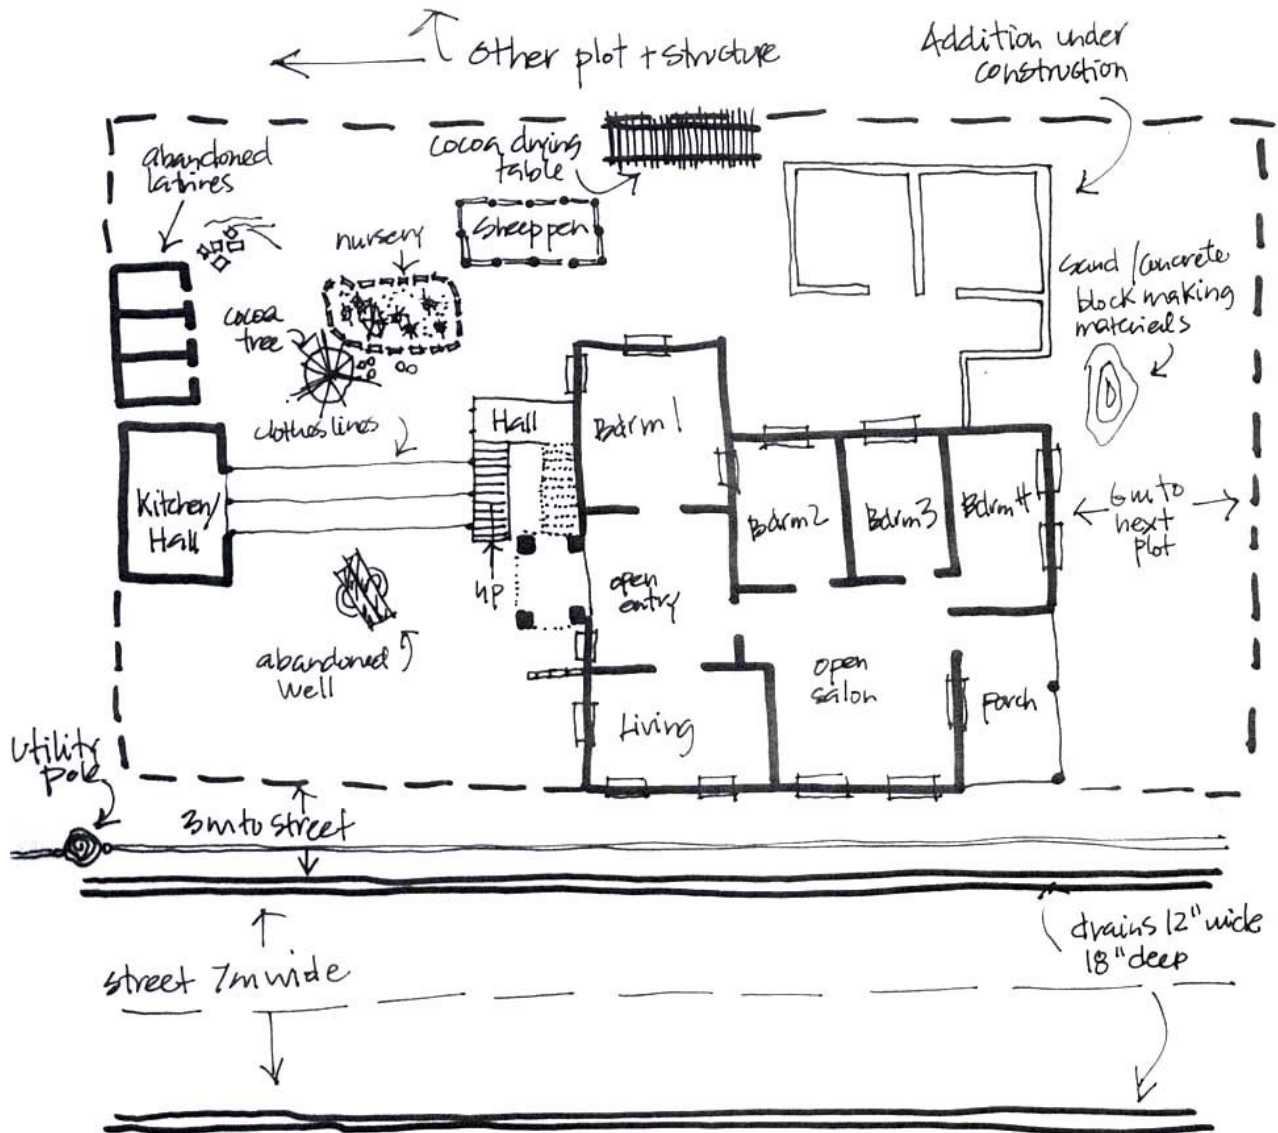 Other plot + structure
Addition under
construction
abandoned
latrines
cocoa drying
table
Sheep pen
nursery
cocoa
tree
sand/concrete
block making
materials
clothes lines
Hall
Bdrm 1
Kitchen/
Hall
Bdrm 2
Bdrm 3
Bdrm 4
6m to
next
plot
up
open
entry
abandoned
well
open
salon
porch
Living
utility
pole
3m to street
drains 12" wide
18" deep
street 7m wide